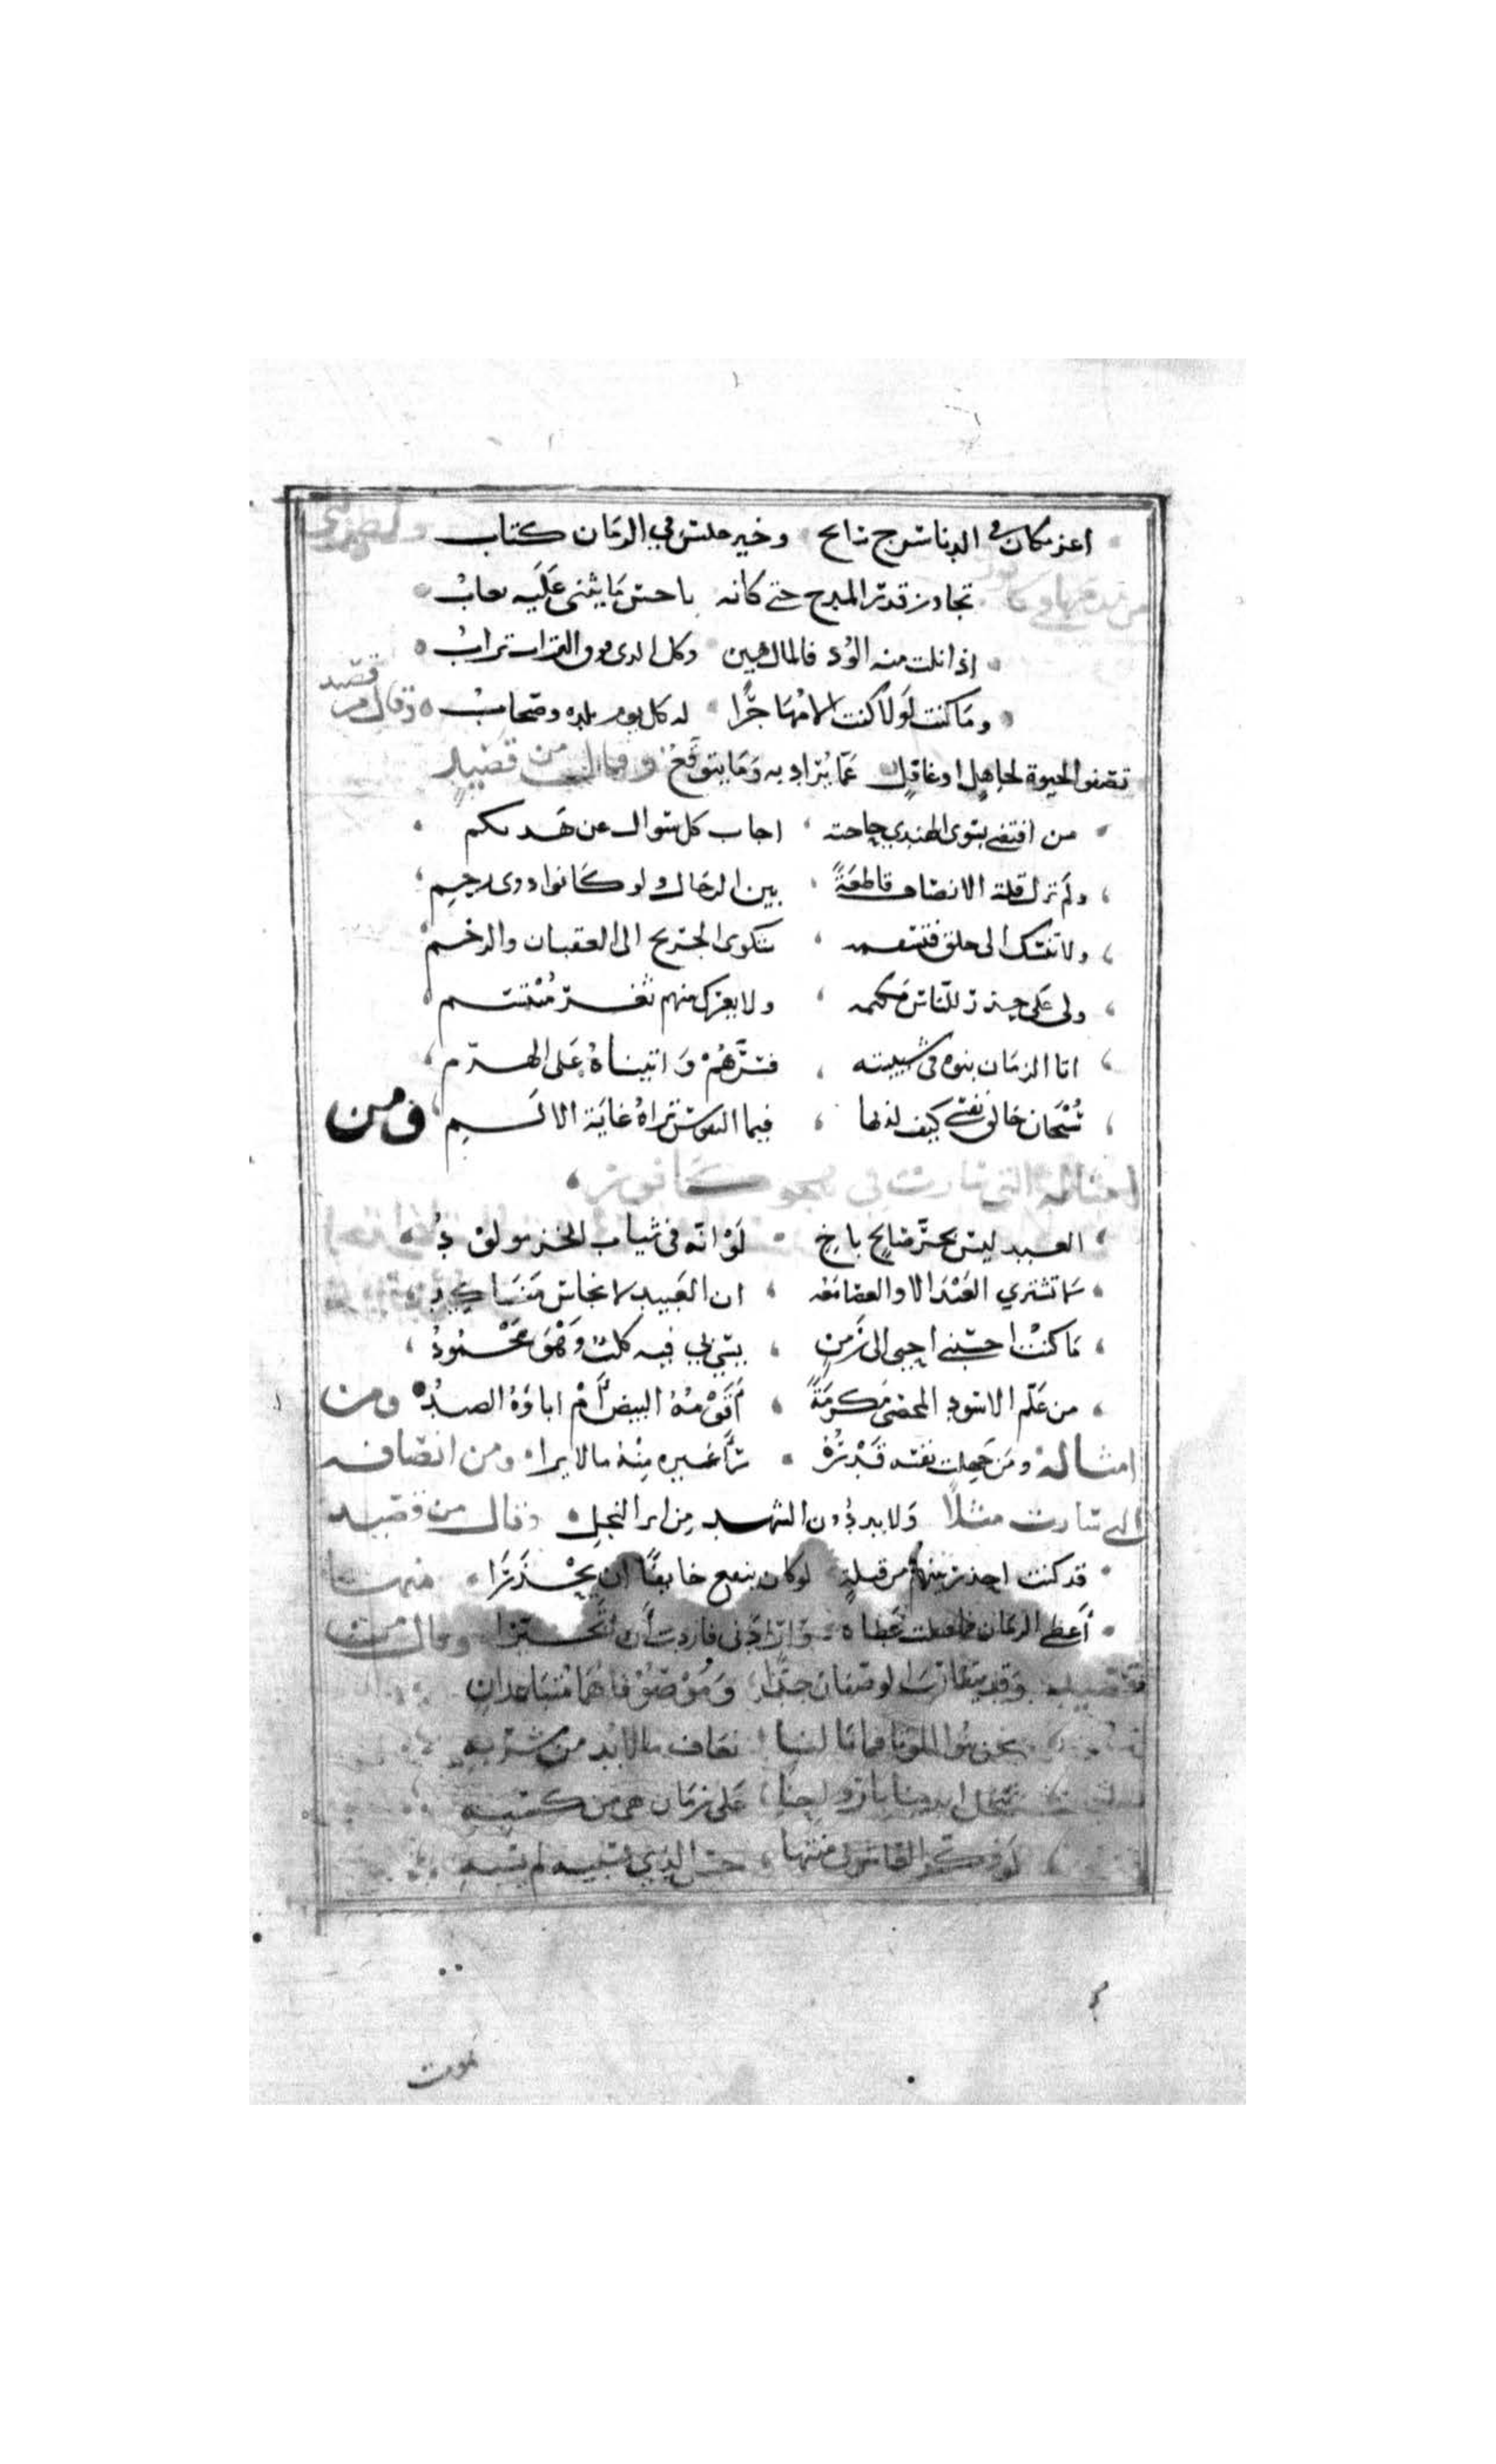 اعز مكان في الدنا سرج سابح وخير جليس في الزمان كتاب
تجاوز قدر المدح حتى كانه باحسن ما يثنى عليه يعاب
اذا نلت منه الود فالمال هين وكل الذي فوق التراب تراب
وما كنت لولا كنت الا مهاجرا له كل يوم بلده وصحاب وقال من قصيد
تصفو الحيوة لجاهل او غافل عما يراد به وما يتوقع وقال من قصيد
من اقتضى بسوى الهندي حاجته اجاب كل سوال عن هل بكم
ولم تزل قلة الانصاف قاطعة بين الرجال ولو كانوا ذوى رحم
ولا تشك الى خلق فتشمته شكوى الجريح الى العقبان والرخم
ولى على حذر للناس تكتمه ولا يغرك منهم ثغر مبتسم
اتا الزمان بنوه في شبيبته فسرهم واتيناه على الهرم
سبحان خالق نفسي كيف لذتها فيما النفوس تراه غاية الالم ومن
امثاله التي سارت في هجو كافور
العبد ليس بحر صالح باخ لو انه في ثياب الخز مولود
لا تشتري العبد الا والعصا معه ان العبيد لانجاس مناكيد
ما كنت احسبني احيى الى زمن يسئ بي فيه كلب وهو محمود
من علم الاسود المخصى مكرمة أقومه البيض أم اباؤه الصيد ومن
امثاله ومن جهلت نفسه قدره رأى غيره منه ما لا يرا ومن انصافه
التي سارت مثلا ولا بد دون الشهد من ابر النحل وقال من قصيد
قد كنت احذر بينهم من قبله لو كان ينفع خايفا ان يحذرا منها
أعطى الزمان فما قبلت عطاه واراد لي فاردت أن أتخيرا وقال من
قصيد وقد يتقارب الوصفان جدا وموصوفاهما متباعدان
نحن بنو الموتا فما بالنا نعاف ما لا بد من شربه
تبخل ايدينا بارواحنا على زمان هي من كسبه
لو فكر العاشق في منتها حسن الذي يسبيه لم يسبه
يموت